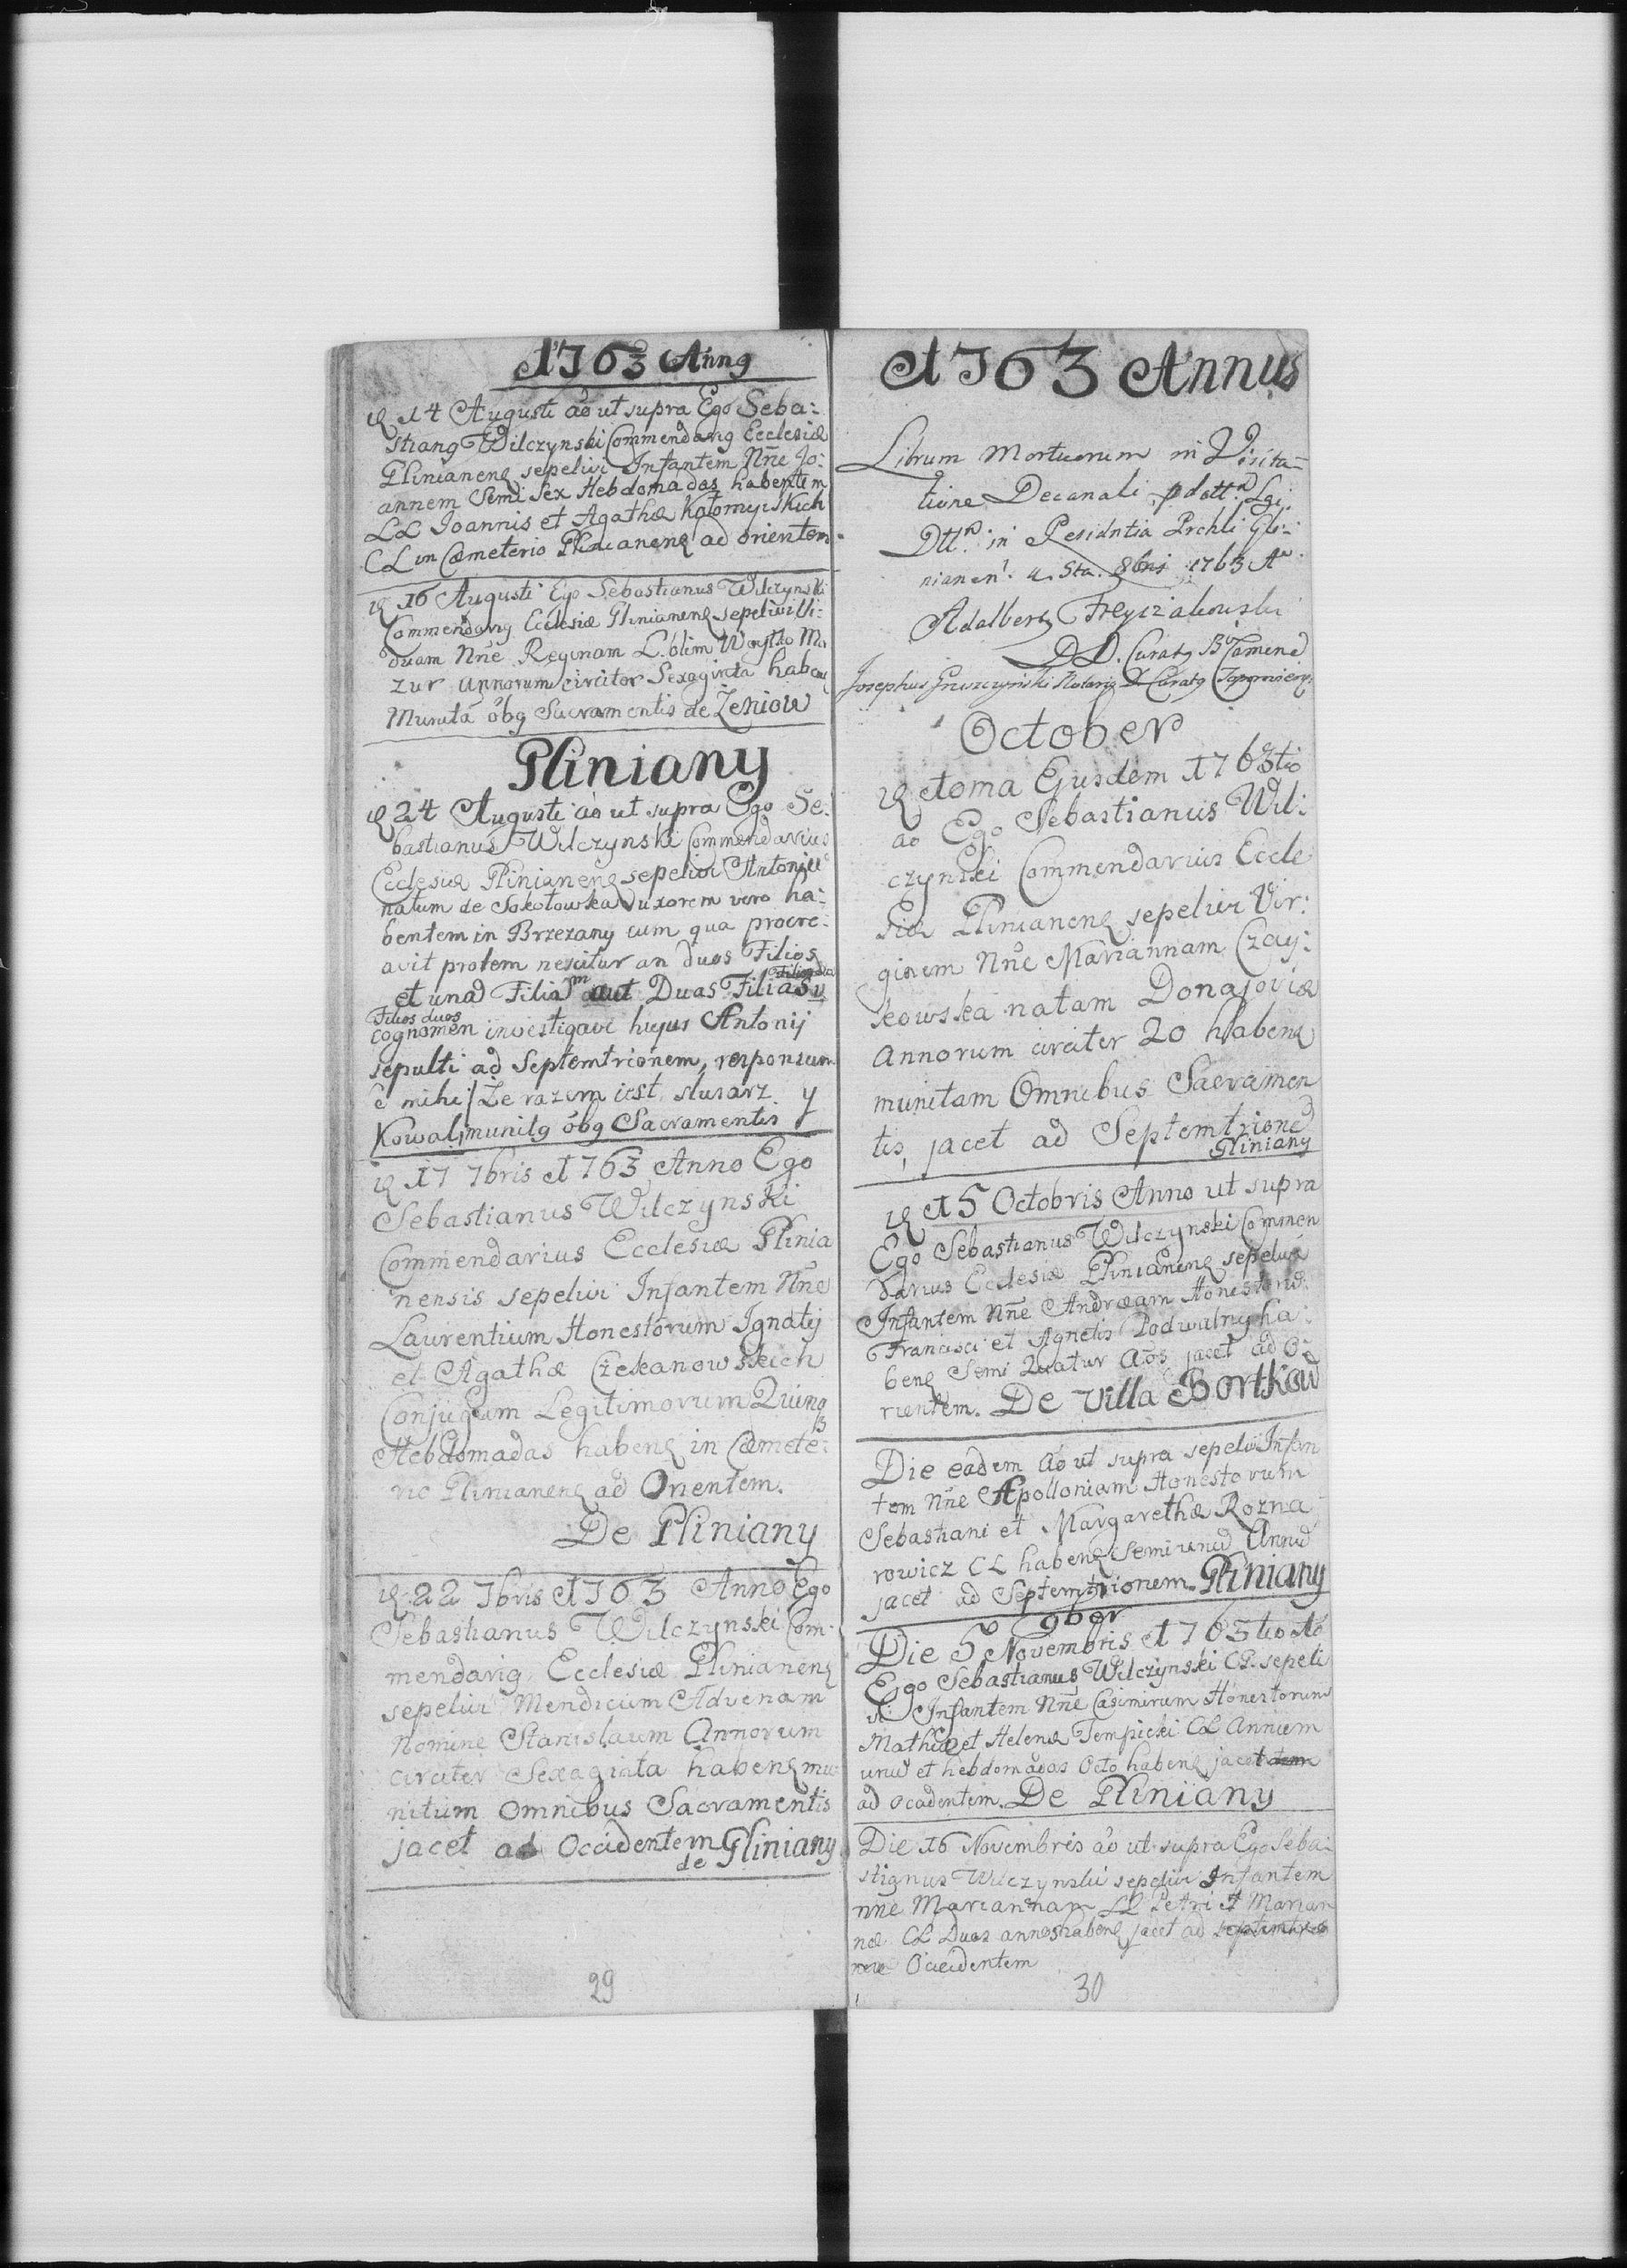 1763 Ann9
14 Augusti ao ut supra Ego Seba:
stian9 Wilczynski Commendari9 Ecclesiæ
Glinianens sepelivi Infantem Nne Jo:
annem Semi Sex Hebdomadas habentem
LL Joannis et Agathæ Kołomyiskich
CL in Cæmeterio Glinianens ad orientem
16 Augusti Ego Sebastianus Wilczynski
Commendari9 Ecclesiæ Glinianens sepelivi Vi:
duam Nne Reginam L. olim Ma
zur annorum circiter Sexaginta habens
Munitā ob9 Sacramentis de Zeniow
Gliniany
24 Augusti ao ut supra Ego Se:
bastianus Wilczynski Commendarius
Ecclesiæ Glinianens sepelivi Antoniū
natum de Sokołowka Uxorem vero ha:
bentem in Brzezany cum qua procre:
avit prolem nescitur an duos Filios
et unad Filiam aut Duas Filias
Filios duos
cognomen investigavi hujus Antonij
sepulti ad Septemtrionem, responsum
ē mihi / Ze razem iest slusarz y
Kowal, munit9 ob9 Sacramentis
17 7bris 1763 Anno Ego
Sebastianus Wilczynski
Commendarius Ecclesiæ Glinia
nensis sepelivi Infantem Nne
Laurentium Honestorum Ignatij
et Agathæ Czekanowskich
Conjugum Legitimorum Quinq
Hebdomadas habens in Cæmete:
rio Glinianens ad Orientem.
De Gliniany
22 7bris 1763 Anno Ego
Sebastianus Wilczynski Com:
mendari9 Ecclesiæ Glinianens
sepelivi Mendicum Advenam
Nomine Stanislaum Annorum
circiter Sexaginta habens mu:
nitum Omnibus Sacramentis
jacet ad Occidentem Gliniany
de
29
1763 Annus
Librum Mortuorum in Visita
tione Decanali
in Residntia Prchli Gli:
nianen. 8bris 1763 A
Adalbert9
D D. Curat9
Josephus Notari9 Curat9
October
Ejusdem 1763tio
ao Ego Sebastianus Wil:
czynski Commendarius Eccle
siæ Glinianens sepelivi Vir:
ginem Nne Mariannam Czay:
kowska natam Donajoviæ
annorum circiter 20 habens
munitam Omnibus Sacramen
tis, jacet ad Septemtrioned
Gliniany
15 Octobris Anno ut supra
Ego Sebastianus Wilczynski Commen
darius Ecclesiæ Glinianens sepelivi
Infantem Nne Andræam Honestorud
Francisci et Agnetis Podwalny ha:
bens Semi Quatur Aos jacet ad O:
rientem. De Villa Bortkow
Die eadem ao ut supra sepelivi Infan
tem Nne Apolloniam Honestorum
Sebastiani et Margarethæ Rozna
rowicz CL habens Semi unud Annud
jacet ad Septemtrionem. Gliniany
9ber
Die 5 Novembris 1763tio Ao
Ego Sebastianus Wilczynski CE. sepeli
vi Infantem Nne Casimirum Honestorum
Mathiæ et Helenæ Tempicki CL Annum
unud et hebdomadas Octo habens jacet
ad ocadentem. De Gliniany
Die 16 Novembris ao ut supra Ego Seba:
stianus Wilczynski sepelivi Infantem
nne Mariannam LL Petri et Marian
næ CL Duos annos habens jacet ad septemtrio
ne Occidentem
30